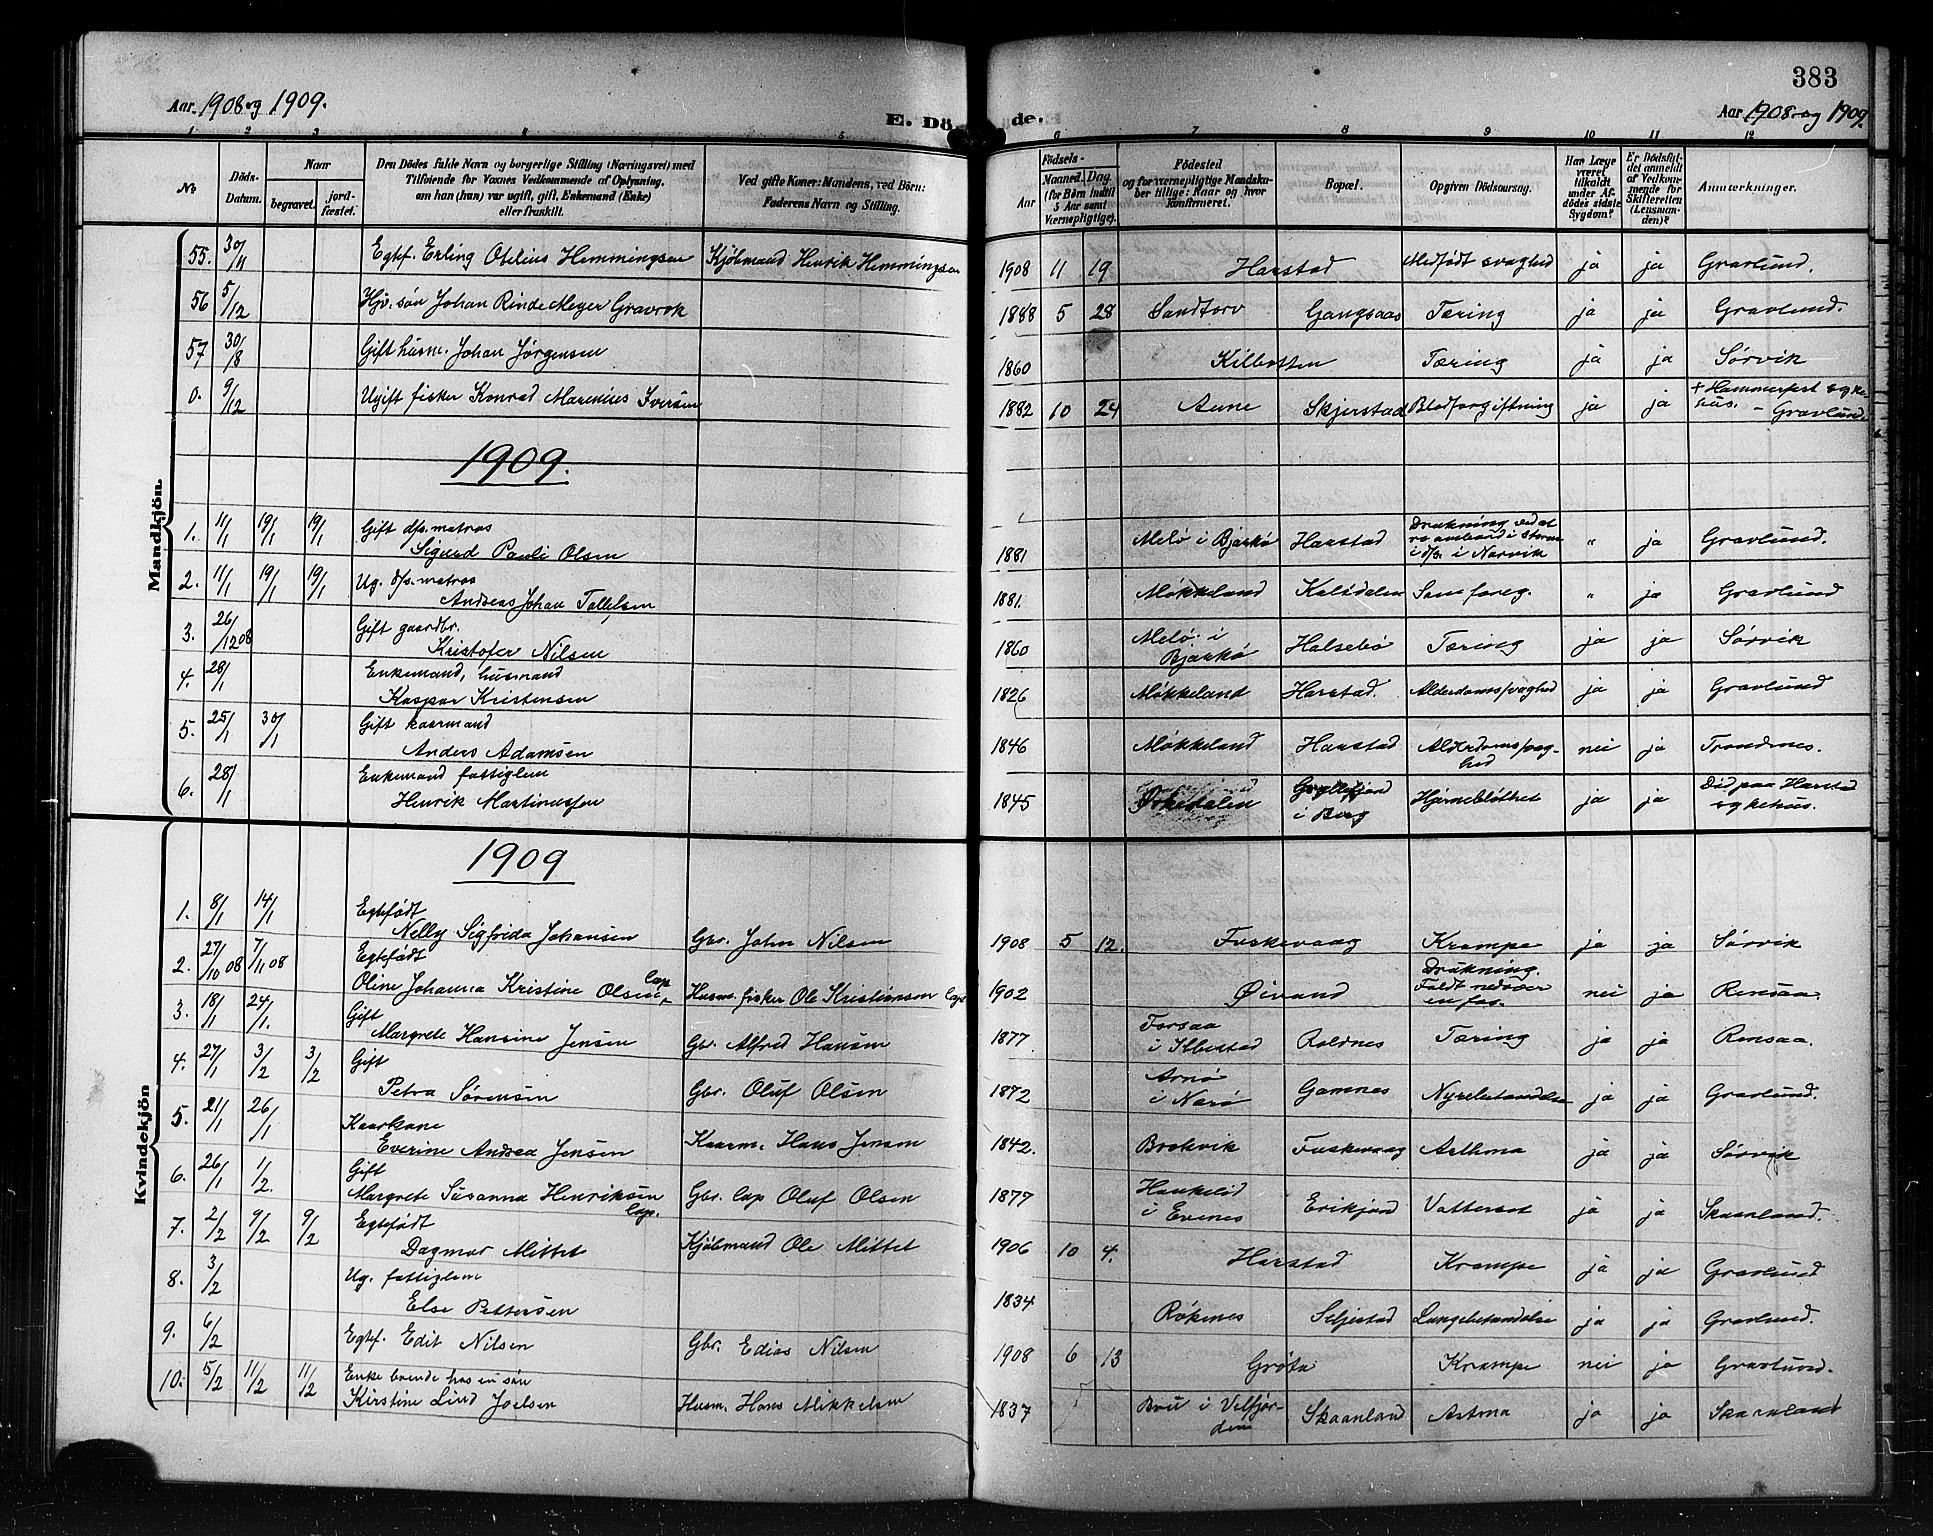 383
Aar 1908 og 1909.
E. Dö
de.
Aar 1908 og 1909.
1 2 3 4 5 6 7 8 9 10 11 12
No
Döds-
Datum.
Naar
begravet.
jord-
fæstet.
Den Dödes fulde Navn og borgerlige Stilling (Næringsvei) med
Tilföiende for Voxnes Vedkommende af Oplysning,
om han (hun) var ugift, gift, Enkemand (Enke)
eller fraskilt.
Ved gifte Koner: Mandens, ved Börn:
Faderens Navn og Stilling.
Födsels-
Aar
Maaned. Dag.
(for Börn indtil
5 Aar samt
Værnepligtige).
Födested
og for værnepligtige Mandska-
ber tillige: Naar og hvor
konfirmeret.
Bopæl.
Opgiven Dödsaarsag.
Har Læge
været
tilkaldt
under Af-
dödes sidste
Sygdom?
Er Dödsfal-
det anmeldt
af Vedkom-
mende for
Skifteretten
(Lensman-
den)?
Anmærkninger.
Mandkjön.
55. 30/11 Egtef. Erling Otelius Hemmingsen Kjöbmand Henrik Hemmingsen 1908 11 19 Harstad Medfödt svaghed ja ja Gravlund.
56 5/12 Hjv. sön Johan Rinde Meyer Gravrok 1888 5 28 Sandtorv Gangsaas Tæring ja ja Gravlund.
57 30/8 Gift husm. Johan Jørgensen 1860 Kilbotten Tæring ja ja Sørvik
0. 9/12 Ugift fisker Konrad Marenius Iversen 1882 10 24 Aune Skjerstad Blodforgiftning ja ja + Hammerfest syke-
hus. - Gravlund.
1909.
1. 11/1 19/1 19/1 Gift d/s. matros
Sigurd Pauli Olsen 1881 Melø i Bjarkø Harstad Drukning ved at
ro ombord i storm
i d/s. i Narvik " ja Gravlund.
2. 11/1 19/1 19/1 Ug. d/s. matros
Andreas Johan Tollefsen 1881. Møkkeland Kalsdalen Som foreg. " ja Gravlund
3. 26/12 08 Gift gaardbr.
Kristofer Nilsen 1860 Melø i
Bjarkø Halsebø Tæring ja ja Sørvik
4. 28/1 Enkemand, husmand
Kaspar Kristensen 1826 Møkkeland Harstad. Alderdomssvaghed ja ja Gravlund
5. 25/1 30/1 Gift kaarmand
Anders Adamsen 1846 Møkkeland Harstad Alderdomssvag-
hed nei ja Trondenes.
6. 28/1 Enkemand fattiglem
Henrik Martinussen 1845 Orkedalen Gryllefjord
i Berg Hjerneblöthet ja ja Död paa Harstad
sykehus.
Kvindekjön
1909
1. 8/1 14/1 Egtefödt
Nelly Sigfrida Johansen Gbr. John Nilsen 1908 5 12. Fuskevaag Krampe ja ja Sørvik
2. 27/10 08 7/11 08 Egtefödt
Oline Johanna Kristine Olsen Lap Husm. fisker Ole Kristiansen Lap 1902 Øivand Drukning.
Faldt ned
en fos. nei ja Rensaa.
3. 18/1 24/1. Gift
Margrete Hansine Jensen Gbr. Alfred Hansen 1877 Forsaa
i Ibestad Roldnes Tæring ja ja Rensaa.
4. 27/1 3/2 3/2 Gift
Petra Sørensen Gbr. Oluf Olsen 1872 Arnø
i Narø Gamnes Nyrebetændelse ja ja Gravlund.
5. 21/1 26/1 Kaarkone
Everine Andrea Jensen Kaarm. Hans Jensen 1842. Brokvik Fuskevaag Asthma ja ja Sørvik
6. 26/1 1/2. Gift
Margrete Susanna Henriksen Lap. Gbr. Lap Oluf Olsen 1877 Haukelid
i Evenes Erikjord Vattersot ja ja Skaanland.
7. 2/2 9/2 9/2 Egtefödt
Dagmar Mittet Kjöbmand Ole Mittet 1906 10 4. Harstad Krampe ja ja Gravlund
8. 3/2 Ug. fattiglem
Else Pettersen 1834 Røkenes Seljestad Lungebetændelse ja ja Gravlund.
9. 6/2 Egtf. Edit Nilsen Gbr. Edias Nilsen 1908 6 13 Grøta Krampe nei ja Gravlund.
10. 5/2 11/2 11/2 Enke boende hos en sön
Kirstine Lind Joelsen Husm. Hans Mikkelsen 1837 Bru i Velfjor-
den Skaanland Astma ja ja Skaanland